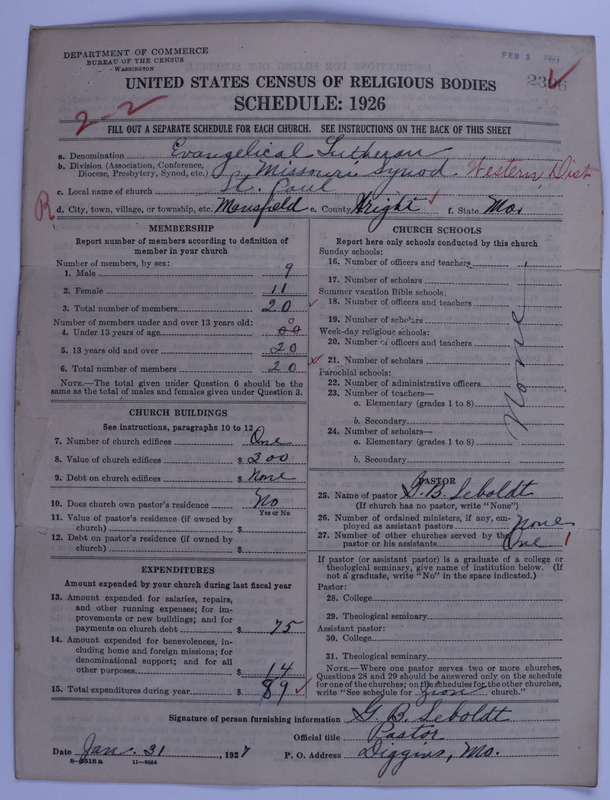 DEPARTMENT OF COMMERCE
BUREAU OF THE CENSUS
WASHINGTON
FEB 3 1927
UNITED STATES CENSUS OF RELIGIOUS BODIES
SCHEDULE: 1926
2-2
FILL OUT A SEPARATE SCHEDULE FOR EACH CHURCH. SEE INSTRUCTIONS ON THE BACK OF THIS SHEET
a. Denomination Evangelical Lutheran
b. Division (Association, Conference, Diocese, Presbytery, Synod, etc.) Missouri Synod. Western Dist.
c. Local name of church St. Paul
R d. City, town, village, or township, etc. Mansfield e. County Wright f. State Mo.
MEMBERSHIP
Report number of members according to definition of
member in your church
Number of members, by sex:
1. Male 9
2. Female 11
3. Total number of members 20
Number of members under and over 13 years old:
4. Under 13 years of age 0
5. 13 years old and over 20
6. Total number of members 20
NOTE.—The total given under Question 6 should be the
same as the total of males and females given under Question 3.
CHURCH BUILDINGS
See instructions, paragraphs 10 to 12
7. Number of church edifices One
8. Value of church edifices $ 300
9. Debt on church edifices $ None
10. Does church own pastor's residence No
Yes or No
11. Value of pastor's residence (if owned by
church) $
12. Debt on pastor's residence (if owned by
church) $
EXPENDITURES
Amount expended by your church during last fiscal year
13. Amount expended for salaries, repairs,
and other running expenses; for im-
provements or new buildings; and for
payments on church debt $ 75
14. Amount expended for benevolences, in-
cluding home and foreign missions; for
denominational support; and for all
other purposes $ 14
15. Total expenditures during year $ 89
CHURCH SCHOOLS
Report here only schools conducted by this church
Sunday schools:
16. Number of officers and teachers
17. Number of scholars
Summer vacation Bible schools:
18. Number of officers and teachers
19. Number of scholars
Week-day religious schools:
20. Number of officers and teachers
21. Number of scholars
Parochial schools:
22. Number of administrative officers
23. Number of teachers—
a. Elementary (grades 1 to 8)
b. Secondary
24. Number of scholars—
a. Elementary (grades 1 to 8)
b. Secondary
None
PASTOR
25. Name of pastor G. B. Seboldt
(If church has no pastor, write "None")
26. Number of ordained ministers, if any, em-
ployed as assistant pastors None
27. Number of other churches served by the
pastor or his assistants One 1
If pastor (or assistant pastor) is a graduate of a college or
theological seminary, give name of institution below. (If
not a graduate, write "No" in the space indicated.)
Pastor:
28. College
29. Theological seminary
Assistant pastor:
30. College
31. Theological seminary
NOTE.—Where one pastor serves two or more churches,
Questions 28 and 29 should be answered only on the schedule
for one of the churches; on the schedules for the other churches,
write "See schedule for Zion church."
Signature of person furnishing information G. B. Seboldt
Official title Pastor
Date Jan. 31, 1927 P. O. Address Diggins, Mo.
11—9084